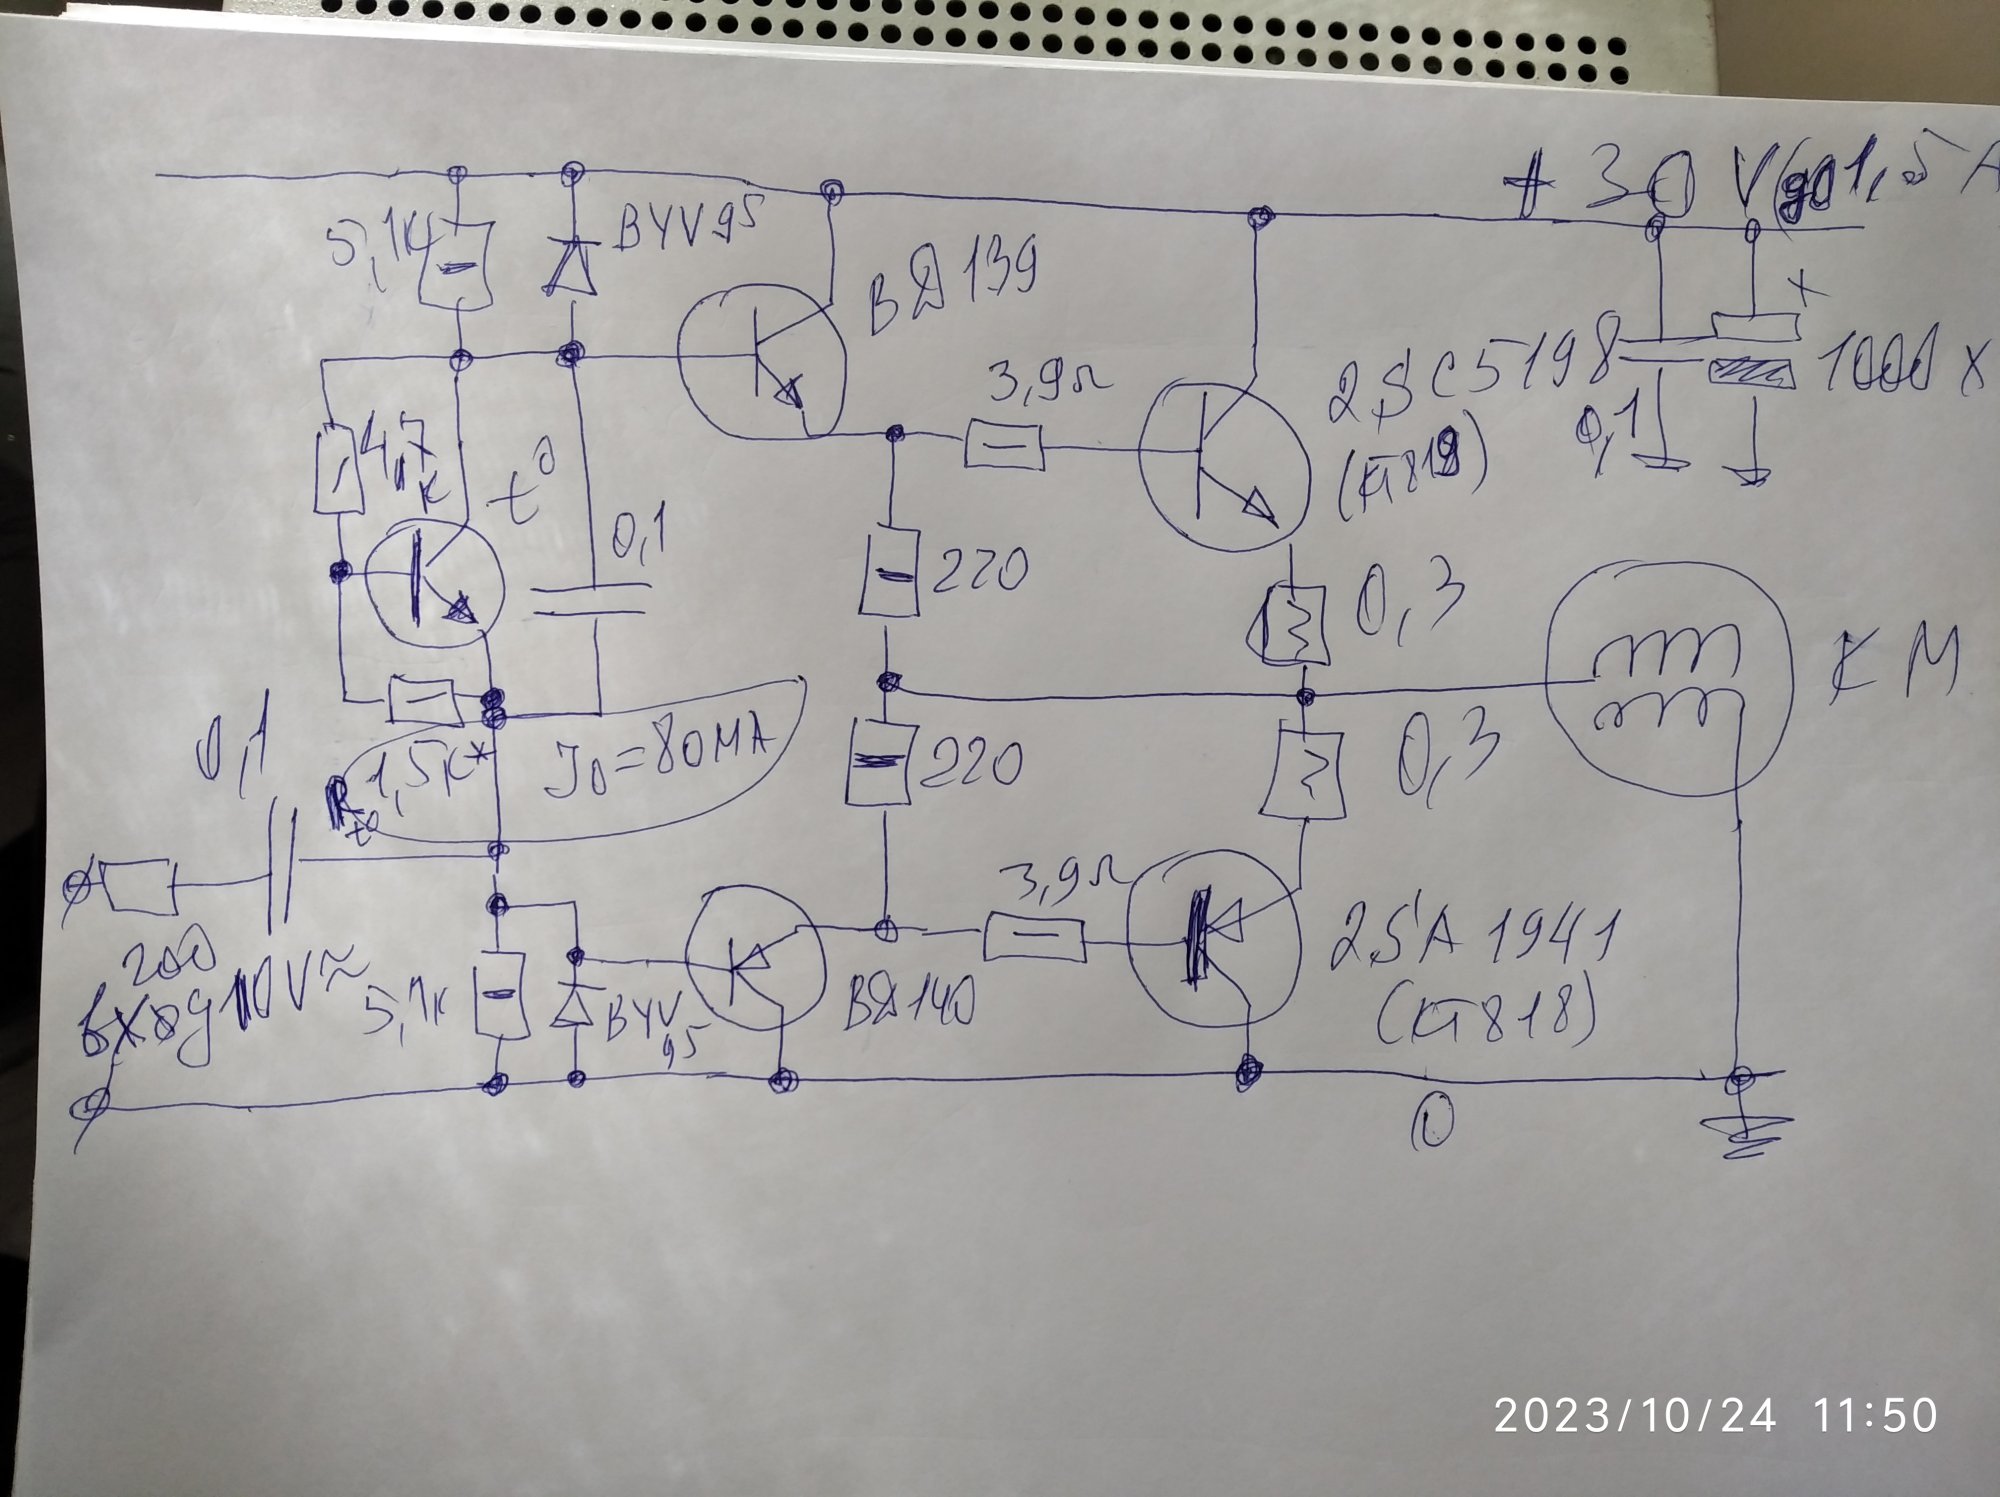 + 30 V (до 1,5 A
5,1K
BYV95
BД139
3,9Ω
2SC5198
(КТ819)
0,1
+
1000 x
4,7
K
t°
0,1
220
0,3
KM
0,1
R t°
1,5K*
J0=80MA
220
0,3
200
вход 10V≈
5,1K
BYV
95
BД140
3,9Ω
2SA1941
(КТ818)
0
2023/10/24 11:50